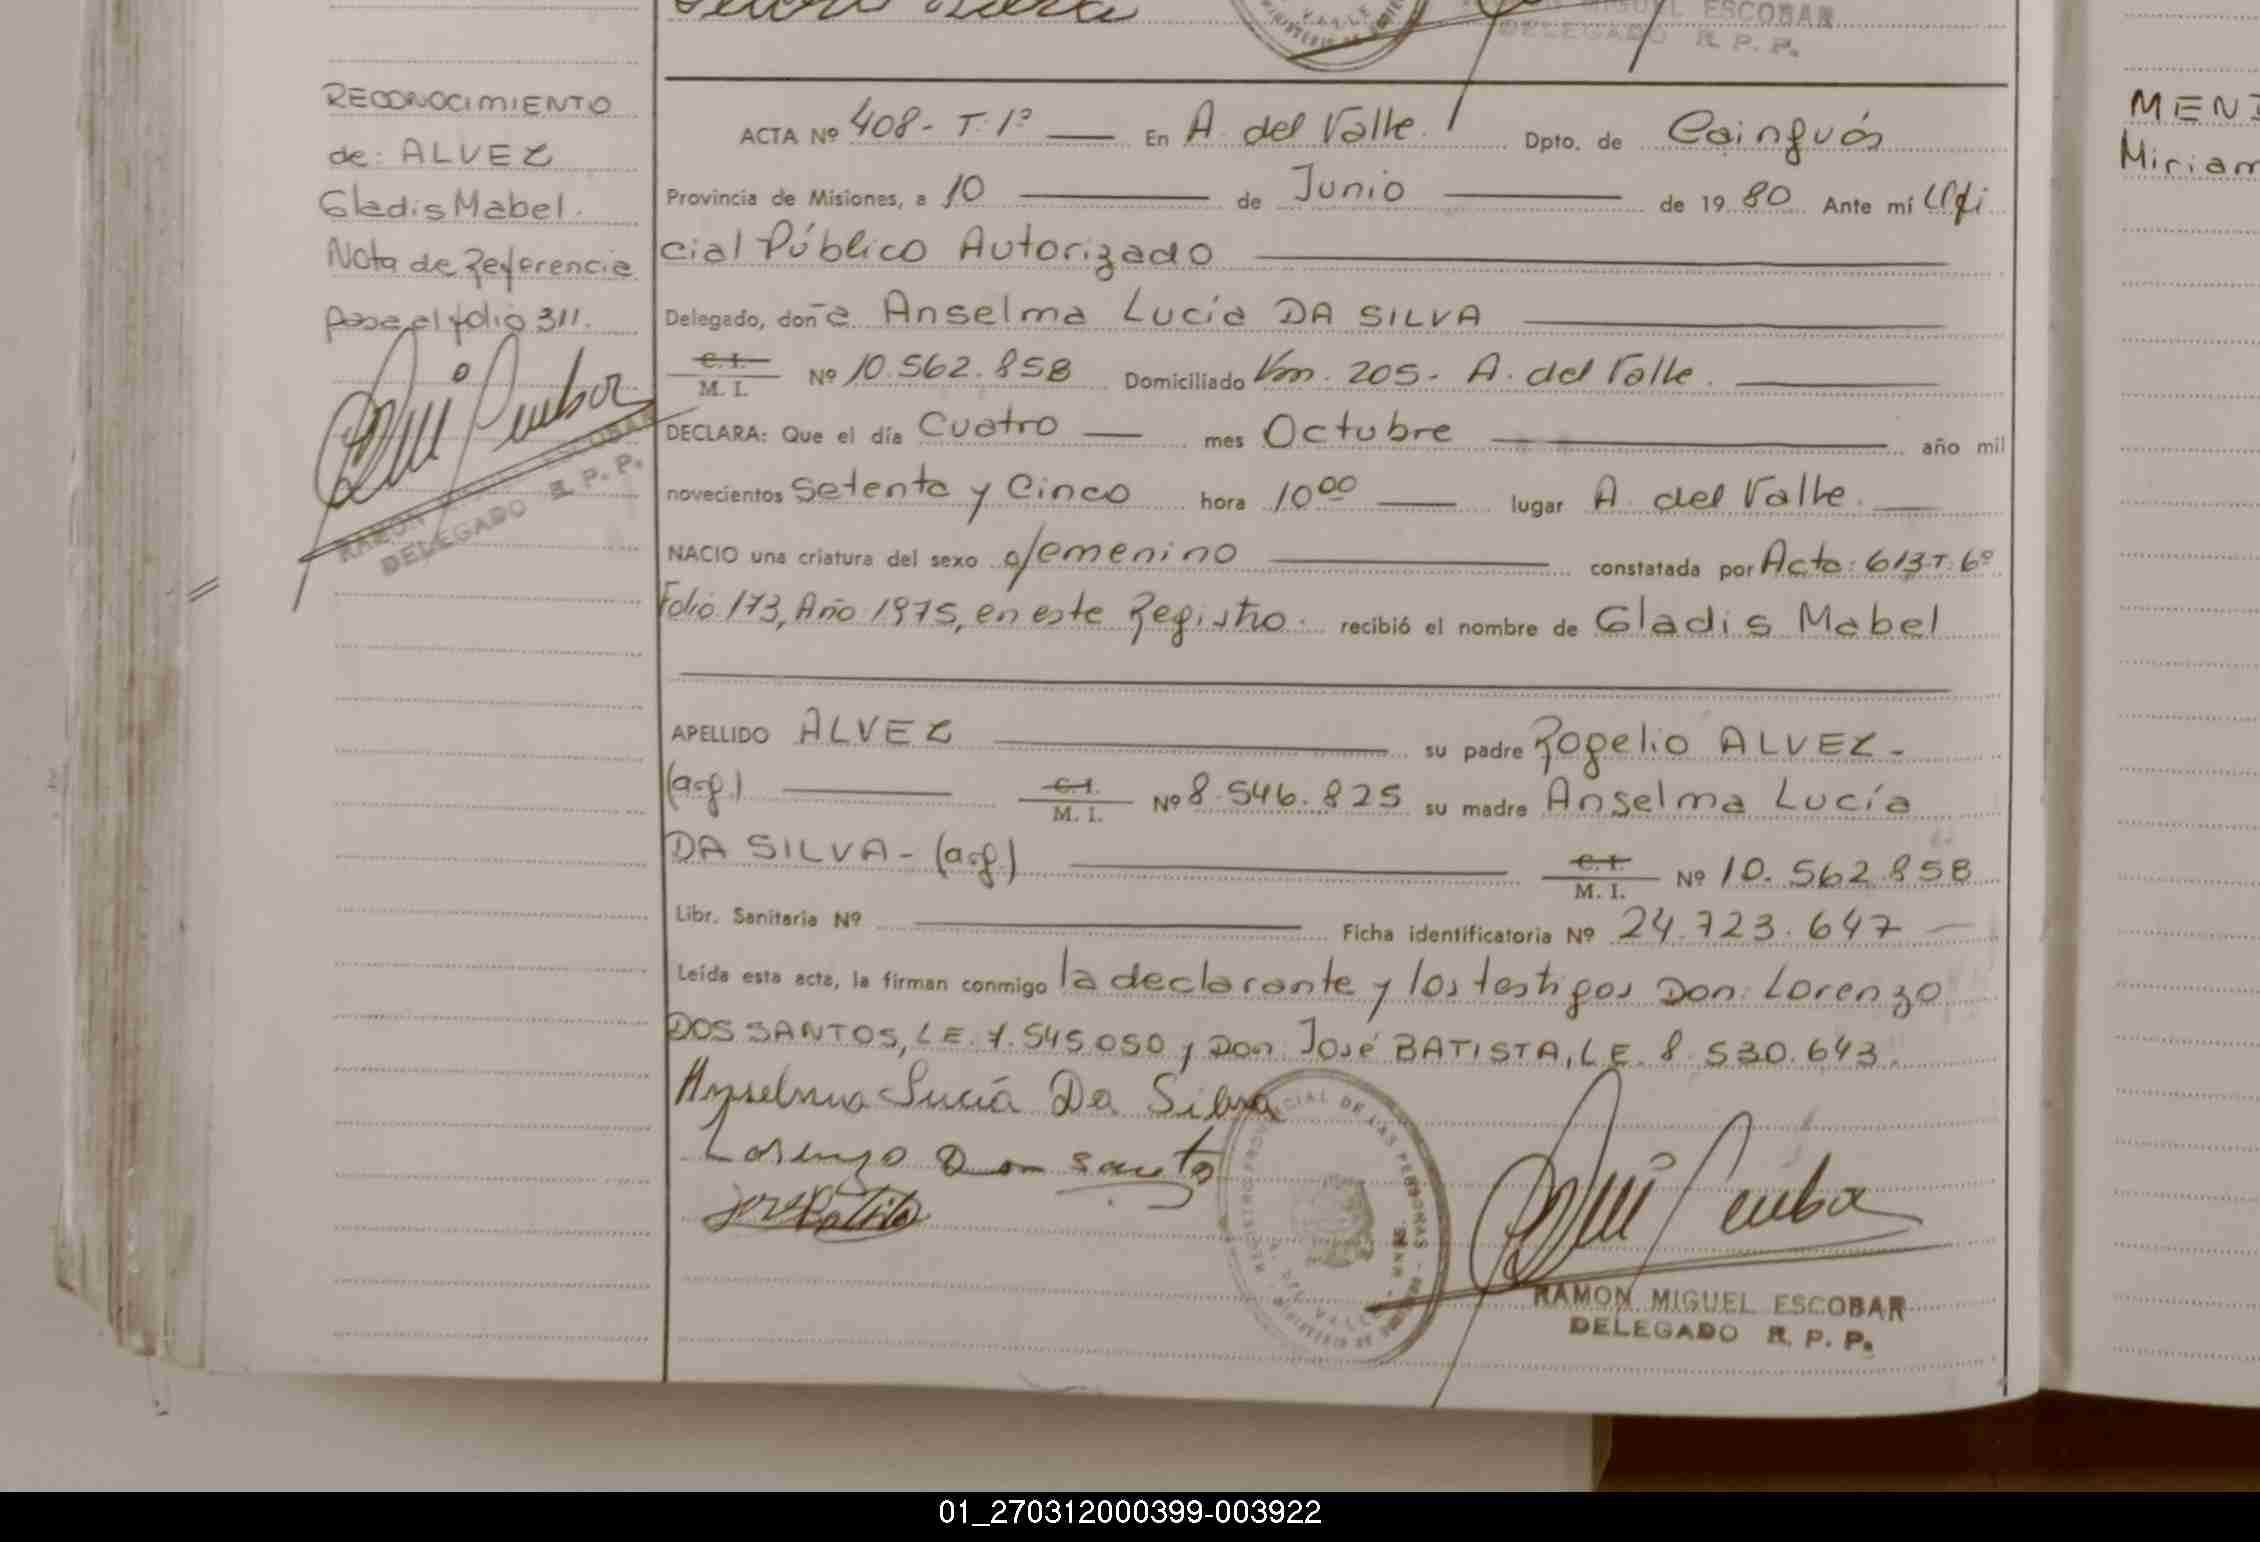 MIGUEL ESCOBAR
DELEGADO R. P. P.
RECONOCIMIENTO
de: ALVEZ
Gladis Mabel.
Nota de Referencia
pase el folio 311.
ESCOBAR
RAMON
DELEGADO R. P. P.
ACTA Nº 408- T. 1º En A. del Valle. Dpto. de Cainguás
Provincia de Misiones, a 10 de Junio de 19 80 Ante mí Ofi
cial Público Autorizado
Delegado, doña Anselma Lucía DA SILVA
C. I. / M. I. Nº 10.562.858 Domiciliado Km. 205- A. del Valle.
DECLARA: Que el día Cuatro mes Octubre año mil
novecientos Setenta y Cinco hora 10⁰⁰ lugar A. del Valle.
NACIO una criatura del sexo femenino constatada por Acta: 613-T. 6º
Folio 173, Año 1975, en este Registro. recibió el nombre de Gladis Mabel
APELLIDO ALVEZ su padre Rogelio ALVEZ-
(arg.) C. I. / M. I. Nº 8.546.825 su madre Anselma Lucía
DA SILVA- (arg.) C. I. / M. I. Nº 10.562.858
Libr. Sanitaria Nº Ficha identificatoria Nº 24.723.647
Leída esta acta, la firman conmigo la declarante y los testigos Don: Lorenzo
DOS SANTOS, L.E. 7.545.050 y Don José BATISTA, L.E. 8.530.643.
Anselma Lucía Da Silva
Lorenzo Dos santos
RAMON MIGUEL ESCOBAR
DELEGADO R. P. P.
MEN
Miriam
01_270312000399-003922